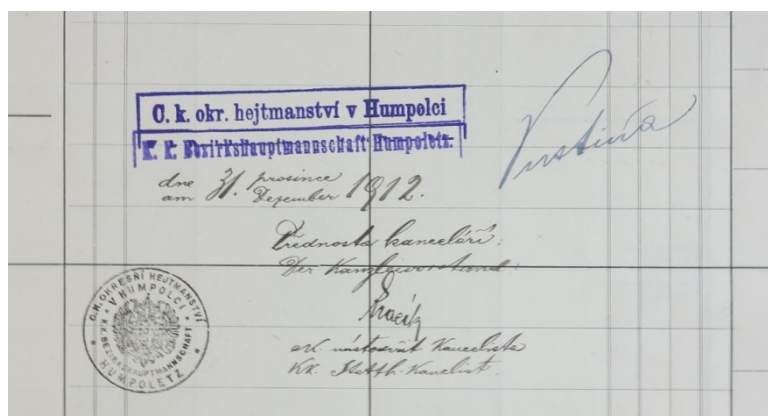 C. k. okr. hejtmanství v Humpolci
K. k. Bezirkshauptmannschaft Humpoletz.
dne 31. prosince 1912.
am Dezember
Přednosta kanceláří:
Der Kanzleivorstand:
c. k. místodrž. kancelista
K. k. Statth. Kanzlist.
C.K. OKRESNÍ HEJTMANSTVÍ
V HUMPOLCI
K.K. BEZIRKSHAUPTMANNSCHAFT
HUMPOLETZ